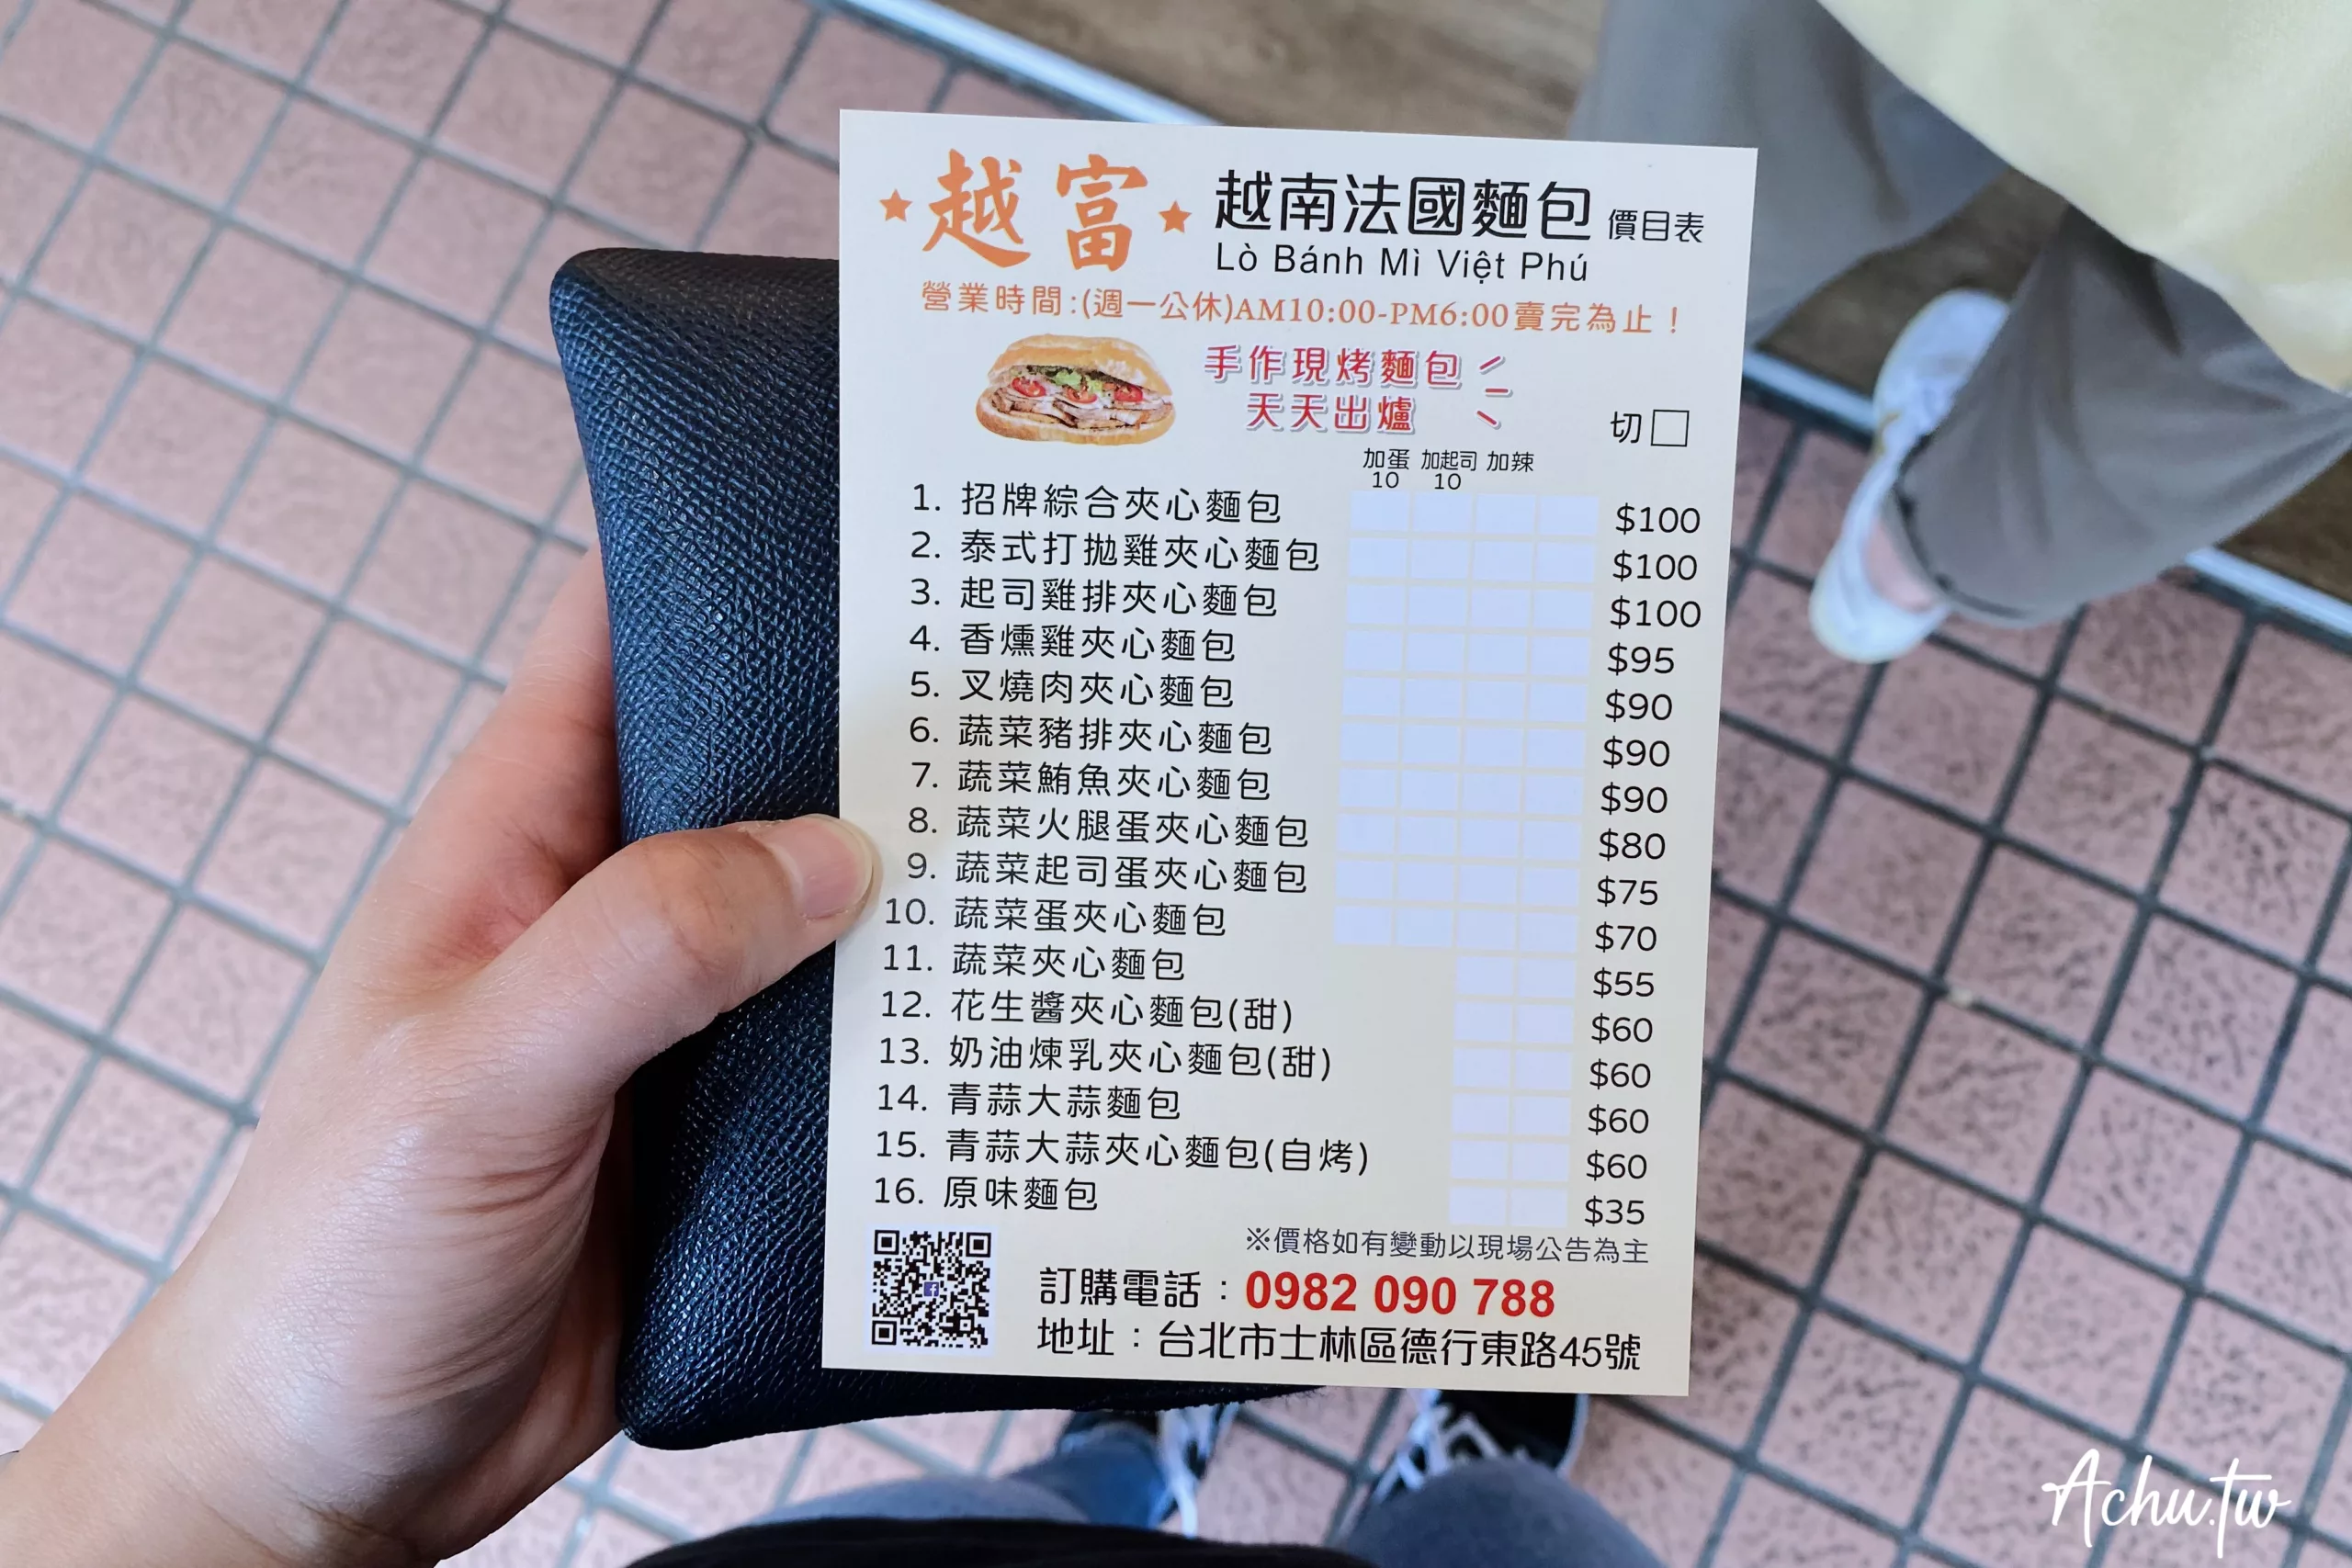 ★越富★ 越南法國麵包 價目表
Lò Bánh Mì Việt Phú
營業時間:(週一公休)AM10:00-PM6:00賣完為止！
手作現烤麵包
天天出爐
切□
加蛋 加起司 加辣
10 10
1. 招牌綜合夾心麵包 $100
2. 泰式打拋雞夾心麵包 $100
3. 起司雞排夾心麵包 $100
4. 香燻雞夾心麵包 $95
5. 叉燒肉夾心麵包 $90
6. 蔬菜豬排夾心麵包 $90
7. 蔬菜鮪魚夾心麵包 $90
8. 蔬菜火腿蛋夾心麵包 $80
9. 蔬菜起司蛋夾心麵包 $75
10. 蔬菜蛋夾心麵包 $70
11. 蔬菜夾心麵包 $55
12. 花生醬夾心麵包(甜) $60
13. 奶油煉乳夾心麵包(甜) $60
14. 青蒜大蒜麵包 $60
15. 青蒜大蒜夾心麵包(自烤) $60
16. 原味麵包 $35
※價格如有變動以現場公告為主
訂購電話：0982 090 788
地址：台北市士林區德行東路45號
Achu.tw